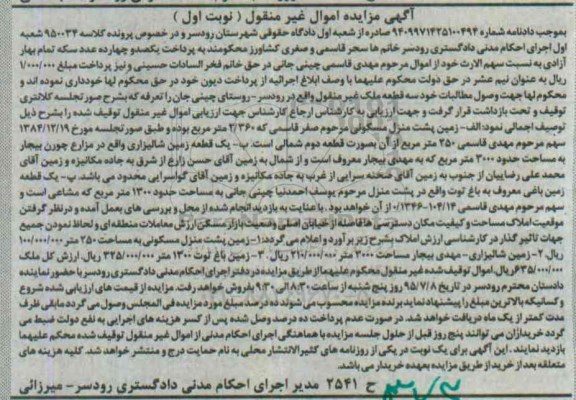 آگهی مزایده اموال غیر منقول ( نوبت اول )
بموجب دادنامه شماره ۹۴۰۹۹۷۱۴۲۵۱۰۰۴۹۴ صادره از شعبه اول دادگاه حقوقی شهرستان رودسر و در خصوص پرونده کلاسه ۹۵۰۰۳۴ شعبه
اول اجرای احکام مدنی دادگستری رودسر خانم ها سحر قاسمی و صغری کشاورز محکومند به پرداخت یکصد و چهارده عدد سکه تمام بهار
آزادی به نسبت سهم الارث خود از اموال مرحوم مهدی قاسمی چینی جانی در حق خانم فخر السادات حسینی و نیز پرداخت مبلغ ۱/۰۰۰/۰۰۰
ریال به عنوان نیم عشر در حق دولت محکوم علیهما با وصف ابلاغ اجرائیه از پرداخت دیون خود در حق محکوم لها خودداری نموده اند و
محکوم لها جهت وصول مطالبات خود سه قطعه ملک غیر منقول واقع در رودسر- روستای چینی جان را تعرفه که بشرح صورتجلسه کلانتری
توقیف و تحت بازداشت قرار گرفت و جهت ارزیابی به کارشناس ارجاع کارشناس جهت ارزیابی اموال غیر منقول توقیف شده را بشرح ذیل
توصیف اجمالی نمود: الف- زمین پشت منزل مسکونی مرحوم صفر قاسمی که ۲/۳۶۰ متر مربع بوده و طبق صورتجلسه مورخ ۱۳۸۴/۱۲/۱۹
سهم مرحوم مهدی قاسمی ۲۵۰ متر مربع از آن بصورت قطعه دوم شمالی است. ب- یک قطعه زمین شالیزاری واقع در مزارع چورن بیجار
به مساحت حدود ۳۰۰۰ متر مربع که به مهدی بیجار معروف است و از شمال به زمین آقای حسن زارع از شرق به جاده مکانیزه و زمین آقای
محمد علی رضاییان از جنوب به زمین آقای صحنه سرایی از غرب به جاده مکانیزه و زمین آقای گواسرایی محدود می باشد. پ- یک قطعه
زمین باغی معروف به باغ توت واقع در پشت منزل مرحوم یوسف احمدنیا چینی جانی به مساحت حدود ۱۳۰۰ متر مربع که مشاعی است و
سهم مرحوم مهدی قاسمی از آن خواهد بود. با عنایت به بازدید انجام شده از محل و بررسی های بعمل آمده و در نظر گرفتن
موقعیت املاک مساحت و کیفیت مکان دسترسی ها فاصله از خیابان اصلی وضعیت بازار مسکن ارزش معاملات منطقه ای و لحاظ نمودن جمیع
جهات تاثیر گذار در کارشناسی ارزش املاک بشرح زیر برآورد و اعلام می گردد: ۱- زمین پشت منزل مسکونی به مساحت ۲۵۰ متر ۱۰۰/۰۰۰/۰۰۰
ریال ۲- زمین شالیزاری- مهدی بیجار مساحت ۳۰۰۰ متر ۲۱۰/۰۰۰/۰۰۰ ریال. ۳- زمین باغ توت ۱۳۰۰ متر ۳۲۵/۰۰۰/۰۰۰ ریال. ارزش کل ملک
۶۳۵/۰۰۰/۰۰۰ ریال. اموال توقیف شده غیر منقول محکوم علیهما از طریق مزایده در دفتر اجرای احکام مدنی دادگستری رودسر با حضور نماینده
دادستان محترم رودسر در تاریخ ۹۵/۷/۸ روز پنج شنبه از ساعت ۸/۳۰ الی ۹/۳۰ بفروش خواهد رفت. مزایده از قیمت های ارزیابی شده شروع
و کسانیکه بالاترین مبلغ را پیشنهاد نماید برنده مزایده محسوب می شوند ده درصد مبلغ مورد مزایده فی المجلس وصول می گردد مابقی ظرف
مدت کمتر از یک ماه دریافت خواهد شد. در صورت عدم پرداخت ده درصد وصل شده پس از کسر هزینه های اجرایی به نفع دولت ضبط می
گردد خریداران می توانند پنج روز قبل از حلول جلسه مزایده با هماهنگی اجرای احکام مدنی از اموال غیر منقول توقیف شده محکم علیهما
بازدید نمایند. این آگهی برای یک نوبت در یکی از روزنامه های کثیر الانتشار محلی به نام حمایت درج و منتشر خواهد شد. کلیه هزینه های
متعلقه بعد از خرید از طریق مزایده بعهده خریدار می باشد.
ح ۲۵۴۱ مدیر اجرای احکام مدنی دادگستری رودسر- میرزائی